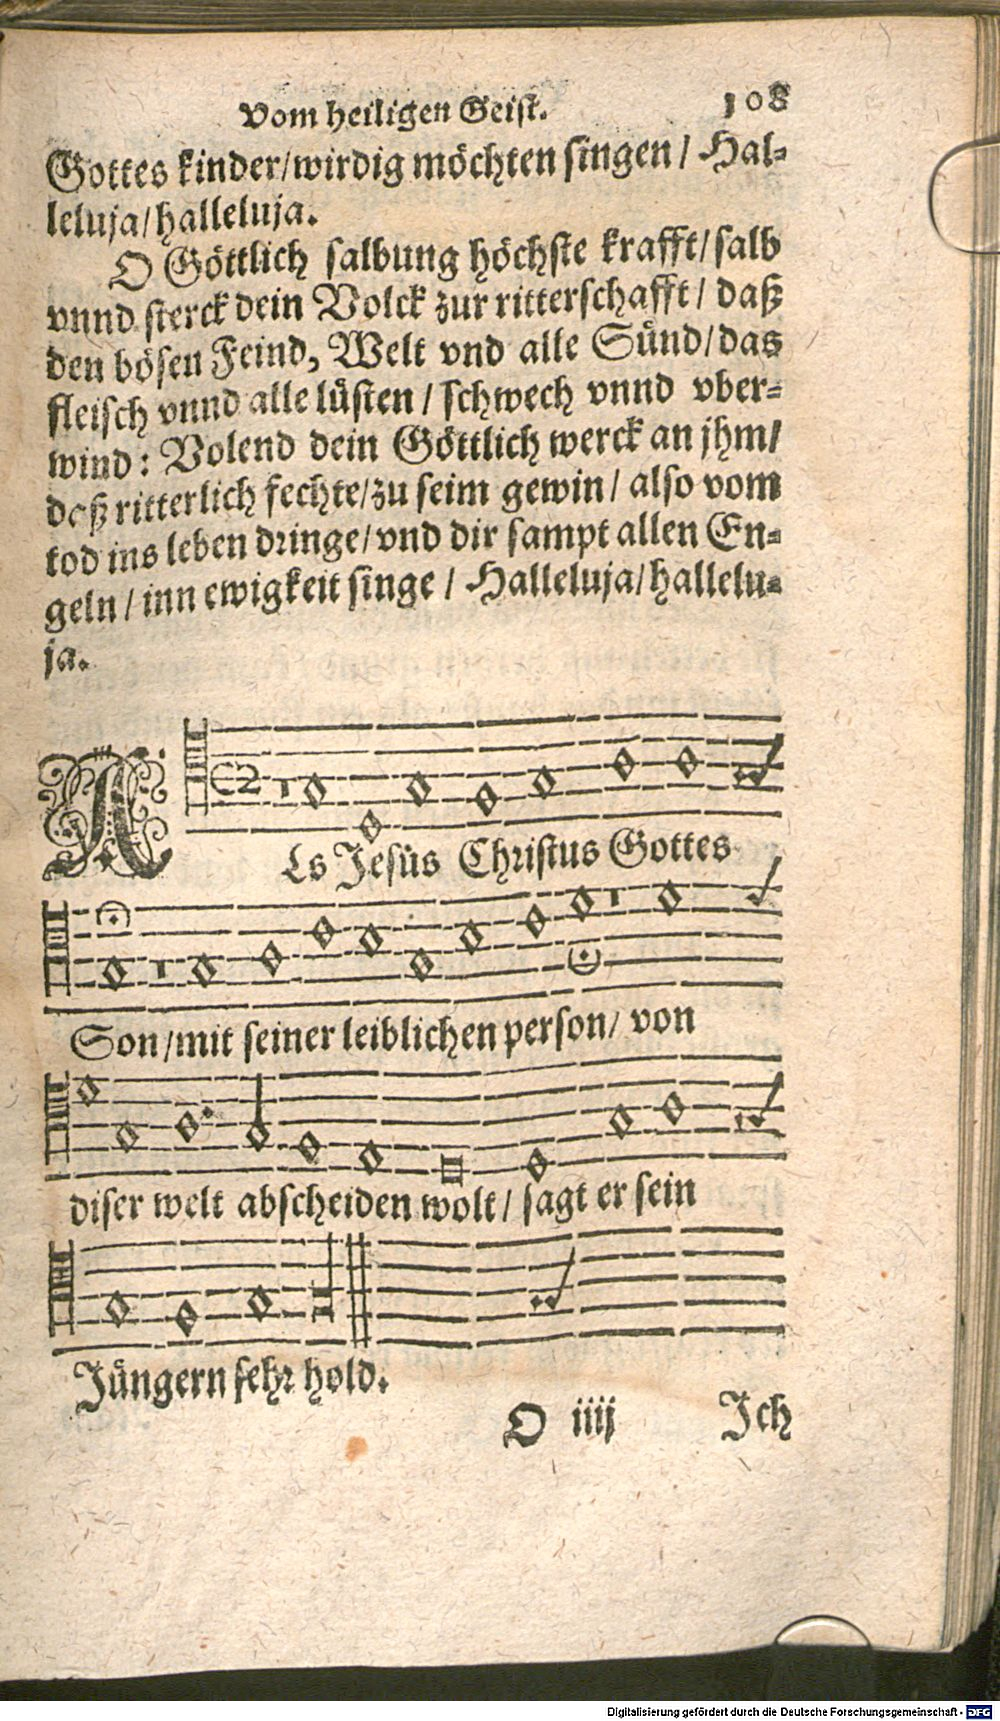 Vom heiligen Geist. 108
Gottes kinder/wirdig möchten singen/ Hal-
leluja/halleluja.
O Göttlich salbung höchste krafft/salb
vnnd sterck dein Volck zur ritterschafft/ daß
den bösen Feind, Welt vnd alle Sünd/das
fleisch vnnd alle lüsten/ schwech vnnd vber-
wind: Volend dein Göttlich werck an jhm/
daß ritterlich fechte/zu seim gewin/ also vom
tod ins leben dringe/vnd dir sampt allen En-
geln/inn ewigkeit singe/ Halleluja/hallelu-
ja.
ALs Jesüs Christus Gottes
Son/mit seiner leiblichen person/ von
diser welt abscheiden wolt/ sagt er sein
Jüngern sehr hold.
O iiij Ich
Digitalisierung gefördert durch die Deutsche Forschungsgemeinschaft - DFG